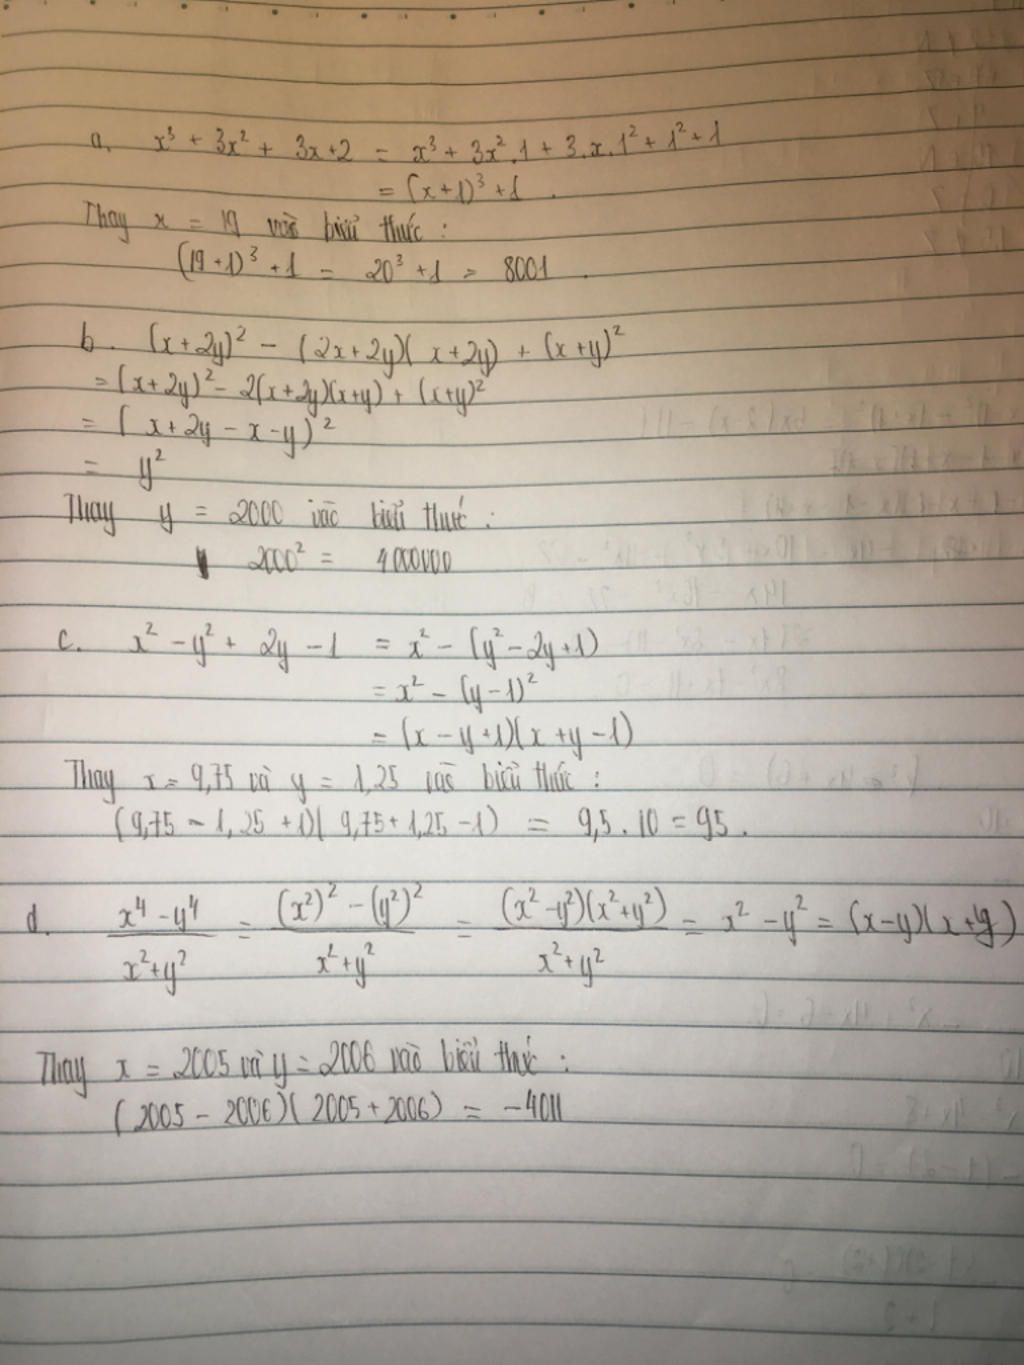 a. x³ + 3x² + 3x + 2 = x³ + 3x².1 + 3.x.1² + 1² + 1
= (x+1)³ + 1.
Thay x = 19 vào biểu thức :
(19+1)³ + 1 = 20³ + 1 = 8001.
b. (x+2y)² − (2x+2y)(x+2y) + (x+y)²
= (x+2y)² − 2(x+2y)(x+y) + (x+y)²
= (x+2y − x − y)²
= y²
Thay y = 2000 vào biểu thức :
2000² = 4000000
c. x² − y² + 2y − 1 = x² − (y² − 2y + 1)
= x² − (y−1)²
= (x − y + 1)(x + y − 1)
Thay x = 9,75 và y = 1,25 vào biểu thức :
(9,75 − 1,25 + 1)(9,75 + 1,25 − 1) = 9,5 . 10 = 95.
d. (x⁴ − y⁴)/(x² + y²) = ((x²)² − (y²)²)/(x² + y²) = ((x² − y²)(x² + y²))/(x² + y²) = x² − y² = (x−y)(x+y)
Thay x = 2005 và y = 2006 vào biểu thức :
(2005 − 2006)(2005 + 2006) = −4011